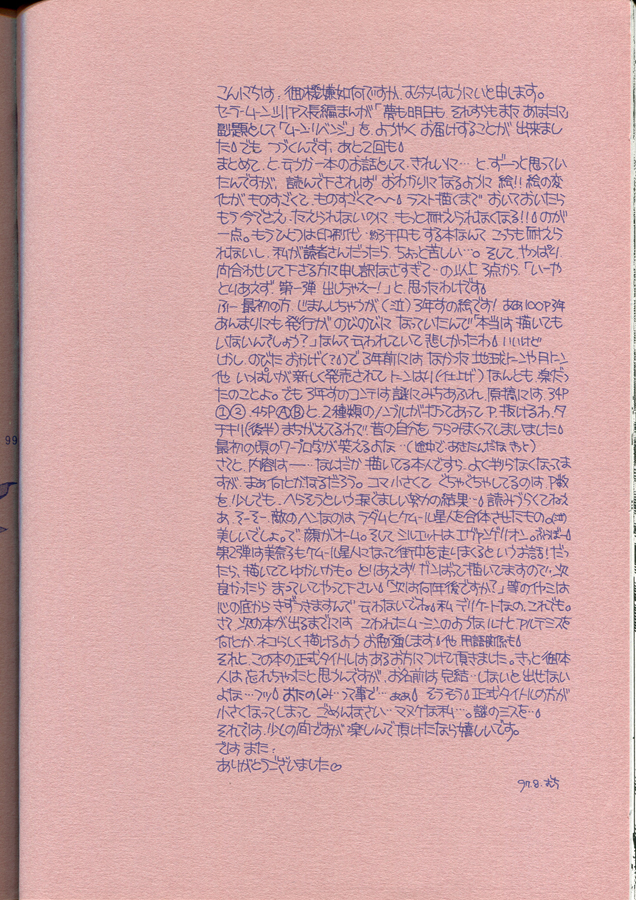 こんにちは。御機嫌如何ですか、むらかりむうにいと申します。
セーラームーンシリアス長編まんが「夢も明日も それすらもまた あなたに」
副題として「ムーンリベンジ」を、ようやくお届けすることが出来まし
た。でも つづくんです。あと2回も。
まとめて、と云うか一本のお話として、きれいに…と、ずーっと思ってい
たんですが、読んで下されば おわかりになるように 絵!!絵の変
化が ものすごくて、ものすごくて〜〜。ラスト描くまで おいておいたら
もう 今でさえ、たえられないのに、もっと耐えられなくなる!!のが
一点。もうひとつは印刷代…約3千円もする本なんて、こっちも耐えら
れないし、私が読者さんだったら、ちょっと苦しい…。そして、やっぱり
問合わせして下さる方に申し訳なさすぎて…の以上3点から、「いーや
とりあえず 第一弾 出しちゃえー!」と思ったわけです。
ふー 最初の方、じまんじゃないが(泣)3年すの絵です!ああ100P3年
あんまりにも 発行が のびのびに なっていたんで「本当は 描いても
いないんでしょう?」なんて云われていて 悲しかったわ。いいけど
しかし、のびた おかげ(?)で 3年前には なかった 地球トーンや月トーン
他 いっぱいが 新しく発売されて、トーンはり(仕上げ)なんとも 楽だっ
たのことよ。でも 3年すのコンテは 謎にみちあふれ、原稿には、34P
①③、45PⒶⒷと、2種類のノンブルが打ってあって P.抜けるわ、タ
チキリ(後半)まちがえてるわで!!昔の自分を うらみまくってしまいました。
最初の頃のワープロ字が笑えるよな…(途中で、あきたんだな きっと)
さてと、内容は――…なんだか 描いてる本人ですら、よく判らなくなってま
すが、まあ何とかなるだろう。コマ小さくて ぐちゃぐちゃしてるのは、P数
を少しでも、へらそうという涙ぐましい努力の結果…。読みづらくてねえ
あ、そーそー、敵のヘンなのは、ラダムとケムール星人を合体させたもの。
美しいでしょ。で、顔がオーム。そして シルエットは エヴァンゲリオン。ふぅばー
第2弾は美奈子もケムール星人になって街中を走りまくるというお話!だっ
たら、描いててゆかいかも。とりあえず ガンばって描いてますので、次
良かったら まっていてやって下さい。「次は何年後ですか?」等のイヤミは
心の底からきずつきますんで 云わないでね。私 デリケートなの、これでも。
さて 次の本が出るまでには、こわれたムーミンのような ルナとアルテミスを
何とか、ネコらしく 描けるよう お勉強します。他 用語関係も。
それと、この本の正式タイトルは あるお方につけて頂きました。きっと御本
人は、忘れちゃったと思うんですが、お名前は 完結…しないと出せない
よな…フッ。おたのしみ…って事で…ああ。そうそう。正式タイトルの方が
小さくなってしまって ごめんなさい…マヌケな私…。謎のミスを…。
それでは、少しの間ですが 楽しんで頂けたなら嬉しいです。
では また。
ありがとうございました♡
97.8.
99